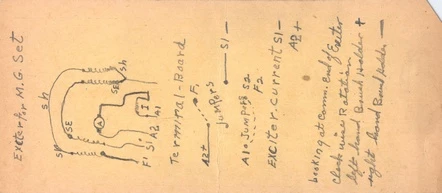 Exciter for M.G. Set
Sh
Sh
Sh
SE
SE
A
I
F1 S1 A2 A1
Terminal-Board
A2+ F1
Jumpers
S1-
A1o Jumpers S2
F2
Exciter-current S1-
A2+
looking at Comm. End of Exciter
Clock wise Rotation
left hand Brush Holder +
right hand Brush holder -